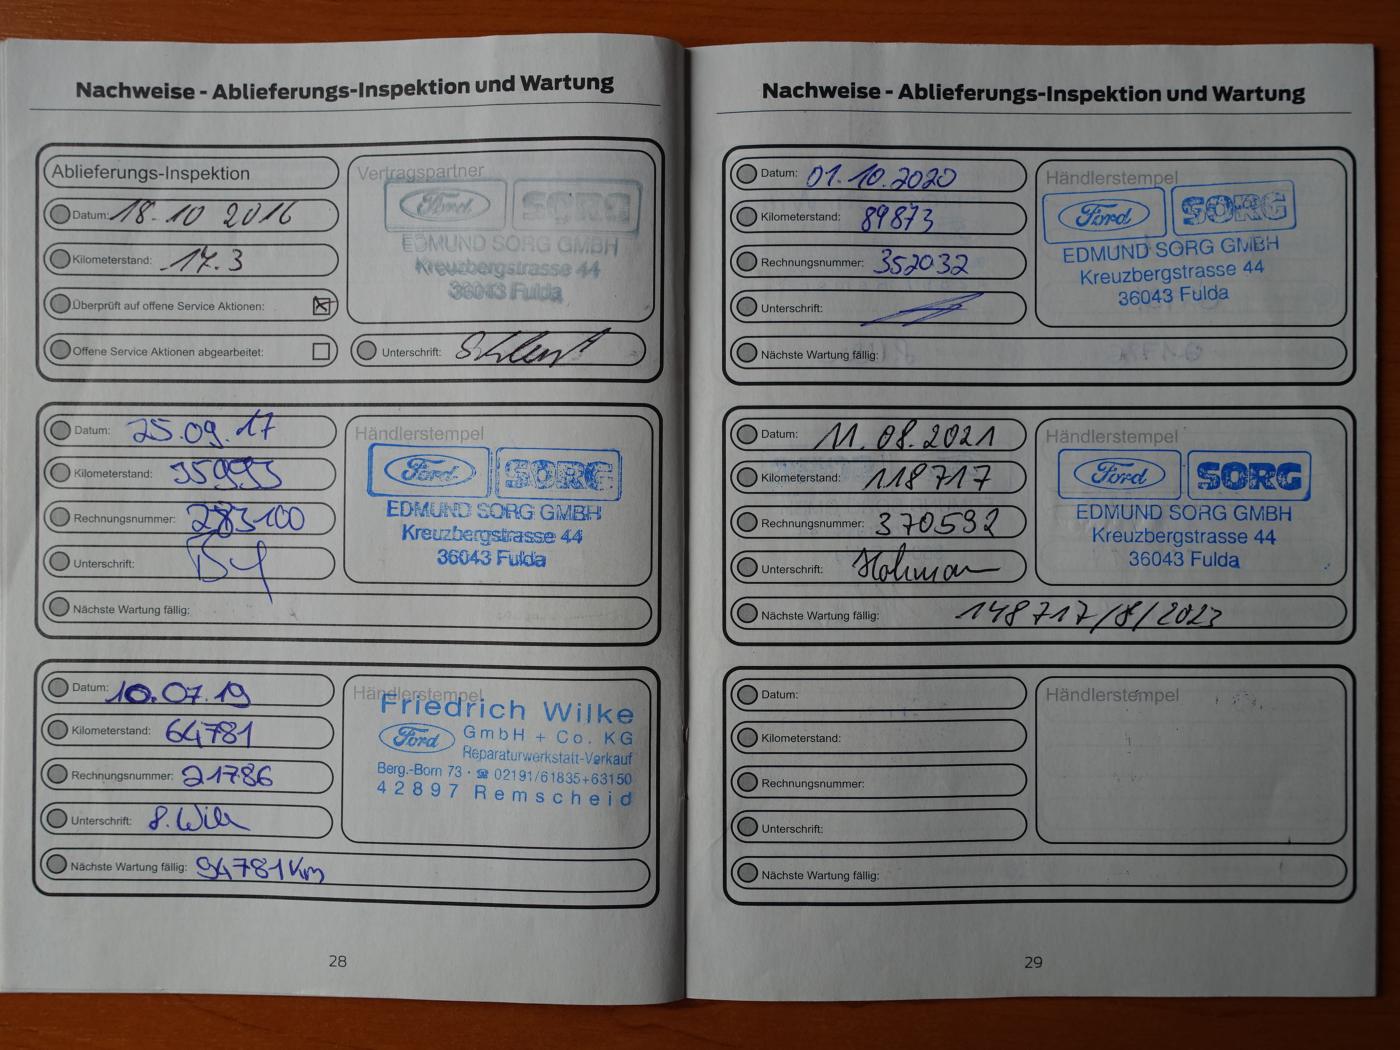 Nachweise - Ablieferungs-Inspektion und Wartung
Ablieferungs-Inspektion
Datum: 18.10 2016
Kilometerstand: 17.3
Überprüft auf offene Service Aktionen:
Offene Service Aktionen abgearbeitet:
Vertragspartner
Ford SORG
EDMUND SORG GMBH
Kreuzbergstrasse 44
36043 Fulda
Unterschrift:
Datum: 25.09.17
Kilometerstand: 35993
Rechnungsnummer: 283100
Unterschrift:
Nächste Wartung fällig:
Händlerstempel
Ford SORG
EDMUND SORG GMBH
Kreuzbergstrasse 44
36043 Fulda
Datum: 10.07.19
Kilometerstand: 64781
Rechnungsnummer: 21786
Unterschrift:
Nächste Wartung fällig: 94781 Km
Händlerstempel
Friedrich Wilke
Ford GmbH + Co. KG
Reparaturwerkstatt-Verkauf
Berg.-Born 73 · ☎ 02191/61835+63150
42897 Remscheid
28
Nachweise - Ablieferungs-Inspektion und Wartung
Datum: 01.10.2020
Kilometerstand: 89873
Rechnungsnummer: 352032
Unterschrift:
Nächste Wartung fällig:
Händlerstempel
Ford SORG
EDMUND SORG GMBH
Kreuzbergstrasse 44
36043 Fulda
Datum: 11.08.2021
Kilometerstand: 118717
Rechnungsnummer: 370592
Unterschrift:
Nächste Wartung fällig: 148717/8/2023
Händlerstempel
Ford SORG
EDMUND SORG GMBH
Kreuzbergstrasse 44
36043 Fulda
Datum:
Kilometerstand:
Rechnungsnummer:
Unterschrift:
Nächste Wartung fällig:
Händlerstempel
29